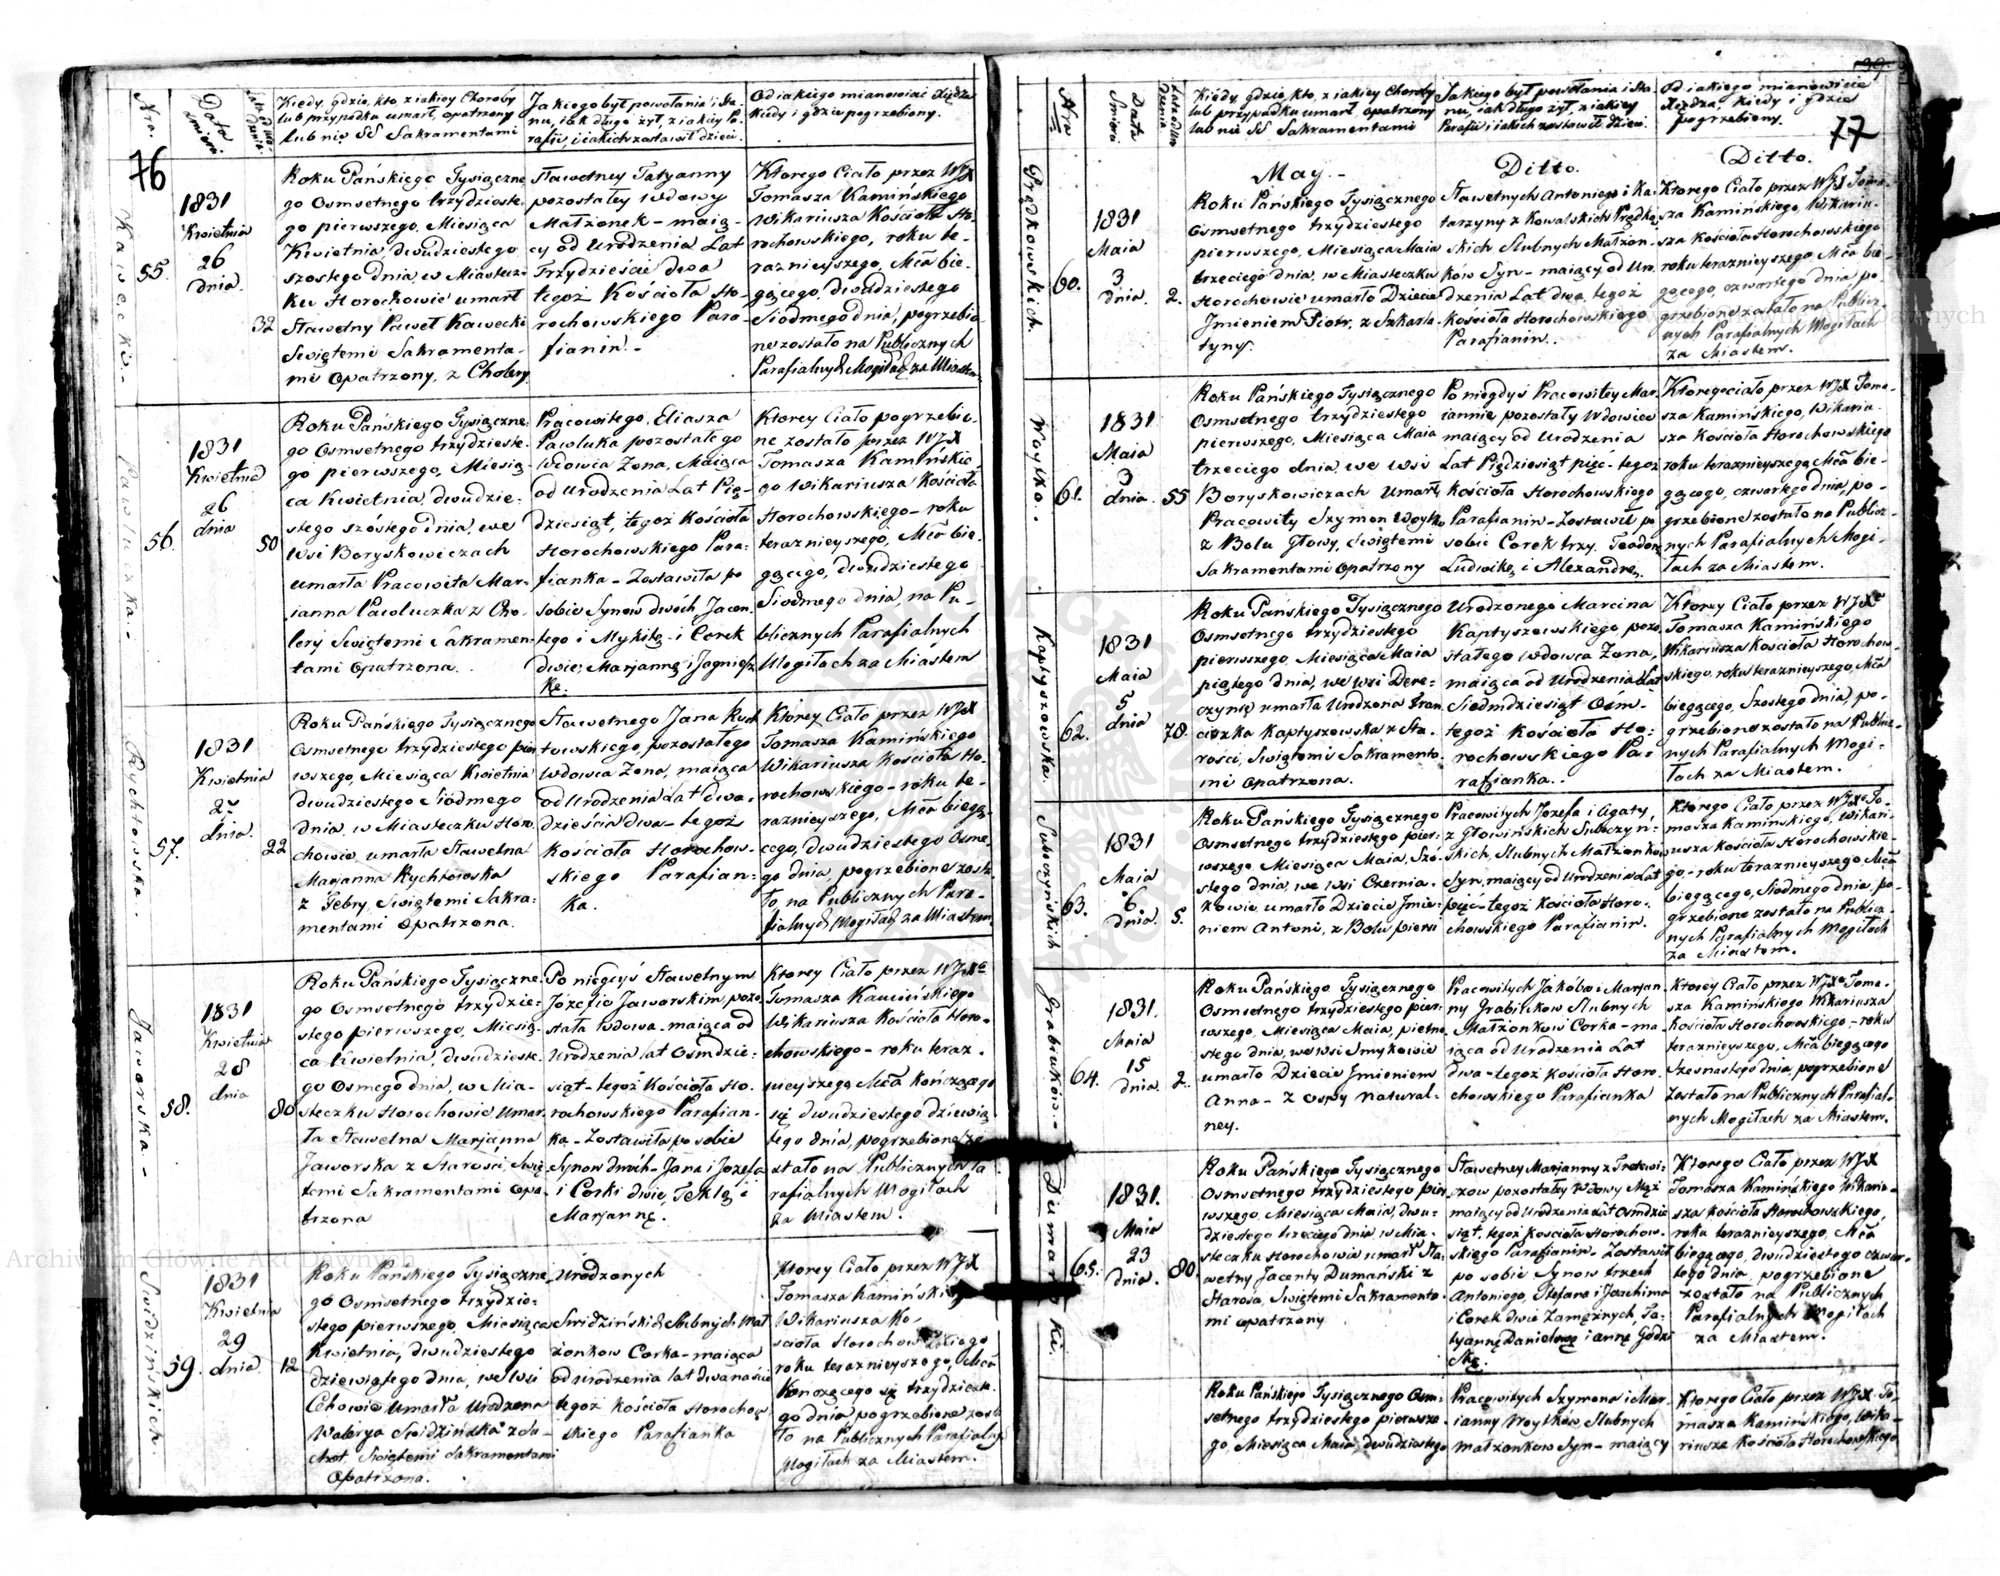 76
Nro.
Data Śmierci
Kiedy, gdzie, kto, z iakiey Choroby
lub przypadku umarł, opatrzony
lub nie SS Sakramentami
Jakiego był powołania i Sta-
nu, iak długo żył, z iakiey Pa-
rafii, i iakich zostawił dzieci.
Od iakiego mianowicie Xiędza
Kiedy i gdzie pogrzebiony.
Kawecki.
55.
1831
Kwietnia
26
dnia.
32
Roku Pańskiego Tysiączne-
go Osmsetnego trzydzieste-
go pierwszego, Miesiąca
Kwietnia, dwudziestego
szostego dnia, w Miastecz-
ku Horochowie umarł
Sławetny Paweł Kawecki
Swiętemi Sakramenta-
mi Opatrzony, z Cholery
Sławetney Tatyanny
pozostałey wdowy
Małżonek - maią-
cy od Urodzenia Lat
Trzydzieście dwa
tegoż Kościoła Ho-
rochowskiego Para-
fianin. -
Ktorego Ciało przez WJX
Tomasza Kamińskiego
Wikariusza Kościoła Ho-
rochowskiego, roku te-
raznieyszego, Mca bie-
gącego, dwudziestego
Siodmego dnia, pogrzebio-
ne zostało na Publicznych
Parafialnych Mogiłach za Miastem.
Pawluczka.
56.
1831
Kwietnia
26
dnia
50
Roku Pańskiego Tysiączne-
go Osmsetnego trzydzieste-
go pierwszego, Miesią-
ca Kwietnia, dwudzie-
stego szóstego dnia, we
Wsi Boryskowiczach
umarła Pracowita Mar-
janna Pawluczka z Cho-
lery Swiętemi Sakramen-
tami Opatrzona.
Pracowitego, Eliasza
Pawluka pozostałego
Wdowca Zona, Maiąca
od Urodzenia Lat Pię-
dziesiąt, tegoż Kościoła
Horochowskiego Para-
fianka - Zostawiła po
sobie Synow dwóch, Jacen-
tego i Mykiłę i Corek
dwie, Marjannę i Jagniesz-
kę.
Ktorey Ciało pogrzebio-
ne zostało przez WJX
Tomasza Kamińskie-
go Wikariusza Kościoła
Horochowskiego - roku
teraznieyszego, Mca bie-
gącego, dwudziestego
Siodmego dnia, na Pu-
blicznych Parafialnych
Mogiłach za Miastem
Rychtowska.
57.
1831
Kwietnia
27
dnia.
22
Roku Pańskiego Tysiącznego
Osmsetnego trzydziestego pier-
wszego, Miesiąca Kwietnia
dwudziestego Siódmego
dnia, w Miasteczku Horo-
chowie, umarła Sławetna
Marjanna Rychtowska
z Febry, Swiętemi Sakra-
mentami Opatrzona.
Sławetnego Jana Rych-
towskiego, pozostałego
Wdowca Zona, maiąca
od Urodzenia Lat dwa-
dzieścia dwa - tegoż
Kościoła Horochow-
skiego Parafian-
ka.
Ktorey Ciało przez WJX
Tomasza Kamińskiego
Wikariusza Kościoła Ho-
rochowskiego - roku te-
raznieyszego, Mca biegą-
cego, dwudziestego Osme-
go dnia, pogrzebione zosta-
ło, na Publicznych Para-
fialnych Mogiłach za Miastem
Jaworska -
58.
1831
Kwietnia
28
dnia
80
Roku Pańskiego Tysiączne-
go Osmsetnego trzydzie-
stego pierwszego, Miesią-
ca Kwietnia, dwudzieste-
go Osmego dnia, w Mia-
steczku Horochowie Umar-
ła Sławetna Marjanna
Jaworska z Starosci, Swię-
temi Sakramentami opa-
trzona
Po niegdyś Sławetnym
Józefie Jaworskim pozo-
stała Wdowa - maiąca od
Urodzenia lat Osmdzie-
siąt - tegoż Kościoła Ho-
rochowskiego Parafian-
ka - Zostawiła po sobie
Synow dwóch - Jana i Jozefa
i Corki dwie, Teklę i
Marjannę.
Ktorey Ciało przez WJX
Tomasza Kamińskiego
Wikariusza Kościoła Horo-
chowskiego - roku teraz-
nieyszego Mca kończącego
się dwudziestego dziewią-
tego dnia, pogrzebione zo-
stało na Publicznych Pa-
rafialnych Mogiłach
za Miastem.
Swidzińskich.
59.
1831
Kwietnia
29
dnia.
12
Roku Pańskiego Tysiączne-
go Osmsetnego trzydzie-
stego pierwszego, Miesiąca
Kwietnia, dwudziestego
dziewiątego dnia, we Wsi
Cehowie Umarła Urodzona
Walerya Swidzińska z Su-
chot, Swiętemi Sakramentami
Opatrzona.
Urodzonych
Swidzińskich Slubnych Mał-
żonkow Corka - maiąca
od urodzenia lat dwanaście
tegoż Kościoła Horochow-
skiego Parafianka
Ktorey Ciało przez WJX
Tomasza Kamińskiego
Wikariusza Ko-
ścioła Horochowskiego
roku teraznieyszego, Mca
Kończącego się trzydzieste-
go dnia pogrzebione zosta-
ło na Publicznych Parafialnych
Mogiłach za Miastem.
39.
77
Nro
Data Śmierci
Kiedy, gdzie, kto, z iakiey Choroby
lub przypadku umarł, opatrzony
lub nie SS Sakramentami
Jakiego był powołania i Sta-
nu, iak długo żył, z iakiey
Parafii i iakich zostawił dzieci.
Od iakiego mianowicie
Xiędza, kiedy i gdzie
pogrzebiony.
May. -
Ditto.
Ditto.
Prądkowskich.
60.
1831
Maia
3
dnia
2.
Roku Pańskiego Tysiącznego
Osmsetnego trzydziestego
pierwszego, Miesiąca Maia
trzeciego dnia, w Miasteczku
Horochowie umarło Dziecie
Jmieniem Piotr, z Szkarla-
tyny.
Sławetnych Antoniego i Ka-
tarzyny z Kowalskich Prądko-
skich, Slubnych Małżon-
kow Syn - maiący od Uro-
dzenia Lat dwa, tegoż
Kościoła Horochowskiego
Parafianin.
Ktorego Ciało przez WJX Toma-
sza Kamińskiego, Wikariu-
sza Kościoła Horochowskiego
roku teraznieyszego Mca bie-
gącego, czwartego dnia, po-
grzebione zostało na Publicz-
nych Parafialnych Mogiłach
za Miastem.
Woytko.
61.
1831
Maia
3
dnia.
55
Roku Pańskiego Tysiącznego
Osmsetnego trzydziestego
pierwszego, Miesiąca Maia
trzeciego dnia, we wsi
Boryskowiczach Umarł
Pracowity Szymon Woytko
z Bolu Głowy, Swiętemi
Sakramentami Opatrzony
Po niegdyś Pracowitey Mar-
iannie pozostały Wdowiec
maiący od Urodzenia
Lat Piędziesiąt pięć - tegoż
Kościoła Horochowskiego
Parafianin - Zostawił po
sobie Corek trzy, Teodorę
Ludwikę, i Alexandrę.
Ktorego ciało przez WJX Toma-
sza Kamińskiego, Wikariu-
sza Kościoła Horochowskiego
roku teraznieyszego Mca bie-
gącego, czwartego dnia, po-
grzebione zostało na Publicz-
nych Parafialnych Mogi-
łach za Miastem.
Kaptyszowska.
62.
1831
Maia
5
dnia
78.
Roku Pańskiego Tysiącznego
Osmsetnego trzydziestego
pierwszego, Miesiąca Maia
piątego dnia, we wsi Dere-
czynie umarła Urodzona Fran-
ciszka Kaptyszowska z Sta-
rosci, Swiętemi Sakramenta-
mi Opatrzona.
Urodzonego Marcina
Kaptyszowskiego pozo-
stałego Wdowca Zona,
maiąca od Urodzenia Lat
Siedmdziesiąt Ośm -
tegoż Kościoła Ho-
rochowskiego Pa-
rafianka.
Ktorey Ciało przez WJX
Tomasza Kamińskiego
Wikariusza Kościoła Horochow-
skiego, roku teraznieyszego, Mca
biegącego, Szostego dnia, po-
grzebione zostało na Publicz-
nych Parafialnych Mogi-
łach za Miastem.
Suboczyńskich
63.
1831
Maia
6
dnia
5.
Roku Pańskiego Tysiącznego
Osmsetnego trzydziestego pier-
wszego, Miesiąca Maia, Szó-
stego dnia, we wsi Czernia-
kowie, umarło Dziecie Jmie-
niem Antoni, z Bolu piersi
Pracowitych Jozefa i Agaty,
z Głowińskich Suboczyń-
skich, Slubnych Małżonkow
Syn, maiący od Urodzenia Lat
pięć - tegoż Kościoła Horo-
chowskiego Parafianin.
Którego Ciało przez WJX To-
masza Kamińskiego, Wikari-
usza Kościoła Horochowskie-
go, - roku teraznieyszego Mca
biegącego, Siodmego dnia, po-
grzebione zostało na Publicz-
nych Parafialnych Mogiłach
za Miastem.
Grabiukow.
64.
1831.
Maia
15
dnia.
2.
Roku Pańskiego Tysiącznego
Osmsetnego trzydziestego pier-
wszego, Miesiąca Maia, pietna-
stego dnia, we wsi Smykowie
umarło Dziecie Jmieniem
Anna - z ospy natural-
ney.
Pracowitych Jakóba i Marjan-
ny Grabiukow Slubnych
Małżonkow Corka - ma-
iąca od Urodzenia Lat
dwa - tegoż Kościoła Horo-
chowskiego Parafianka
Ktorey Ciało przez WJX Toma-
sza Kamińskiego Wikariusza
Kościoła Horochowskiego, - roku
teraznieyszego, Mca biegącego
Szesnastego dnia, pogrzebione
Zostało na Publicznych Parafial-
nych Mogiłach za Miastem.
65.
1831.
Maia
23
dnia.
80
Roku Pańskiego Tysiącznego
Osmsetnego trzydziestego pier-
wszego, Miesiąca Maia, dwu-
dziestego trzeciego dnia, w Mia-
steczku Horochowie umarł Sła-
wetny Jacenty Dumański z
Starosci, Swiętemi Sakramenta-
mi opatrzony
Sławetney Marjanny z
pozostałey Wdowy Mąż
maiący od Urodzenia Lat Osmdzie-
siąt, tegoż Kościoła Horochow-
skiego Parafianin - Zostawił
po sobie Synow trzech
Antoniego, Stefana i Joachima
i Corek dwie Zamężnych, Ta-
tyannę Danielową i Annę
Ktorego Ciało przez WJX
Tomasza Kamińskiego Wikariu-
sza Kościoła Horochowskiego,
roku teraznieyszego, Mca
biegącego, dwudziestego czwar-
tego dnia, pogrzebione
zostało na Publicznych
Parafialnych Mogiłach
za Miastem.
Roku Pańskiego Tysiącznego Osm-
setnego trzydziestego pierwsze-
go, Miesiąca Maia, dwudziestego
Pracowitych Szymona i Mar-
ianny Woytkow, Slubnych
małżonkow Syn - maiący
Ktorego Ciało przez WJX To-
masza Kamińskiego, Wika-
riusza Kościoła Horochowskiego
Archiwum Główne Akt Dawnych